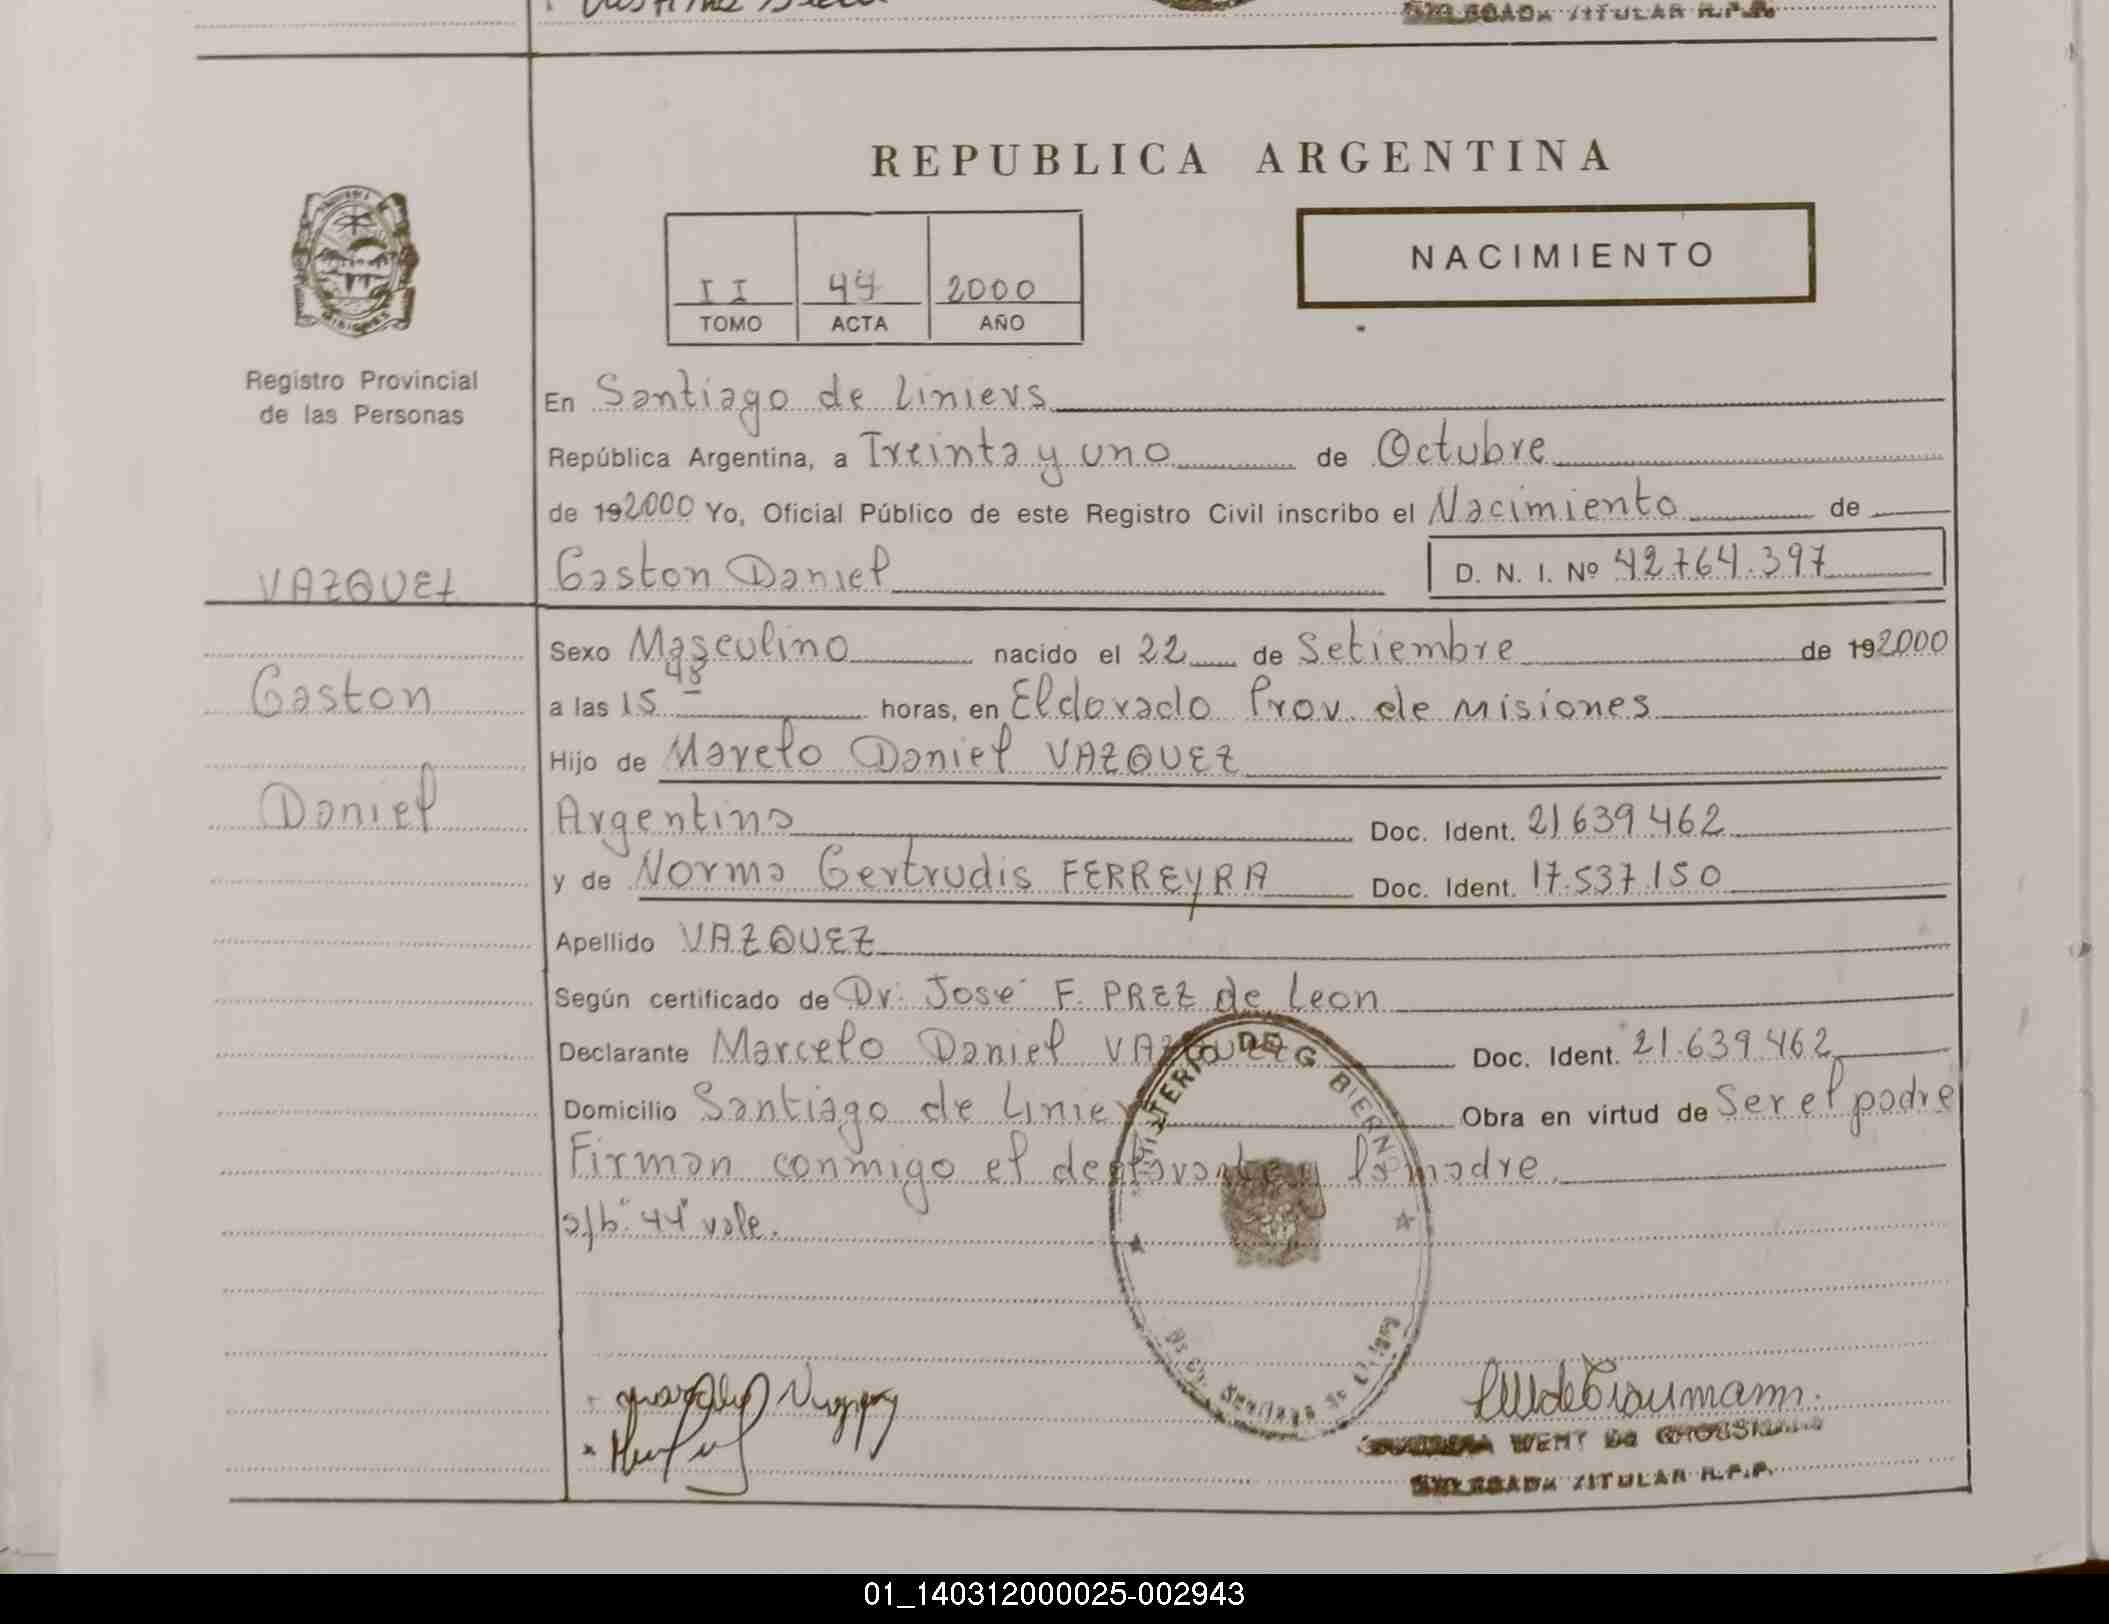 REPUBLICA ARGENTINA
NACIMIENTO
II 44 2000
TOMO ACTA AÑO
Registro Provincial
de las Personas
En Santiago de Liniers
República Argentina, a Treinta y uno de Octubre
de 192000 Yo, Oficial Público de este Registro Civil inscribo el Nacimiento de
VAZQUEZ
Gaston Daniel D. N. I. Nº 42.764.397
Sexo Masculino nacido el 22 de Setiembre de 192000
Gaston
a las 15 45 horas, en Eldorado Prov. de Misiones
Hijo de Marcelo Daniel VAZQUEZ
Daniel
Argentino Doc. Ident. 21639462
y de Norma Gertrudis FERREYRA Doc. Ident. 17.537.150
Apellido VAZQUEZ
Según certificado de Dr. José F. PREZ de Leon
Declarante Marcelo Daniel VAZQUEZ Doc. Ident. 21.639.462
Domicilio Santiago de Linier Obra en virtud de Ser el padre
Firman conmigo el declarante y la madre
s/b "44" vale.
MINISTERIO DE GOBIERNO
WENT DE
TITULAR R.P.P.
01_140312000025-002943